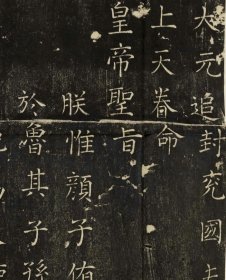 大元追封兗國
上天眷命
皇帝聖旨
朕惟顏子侑
於魯其子孫